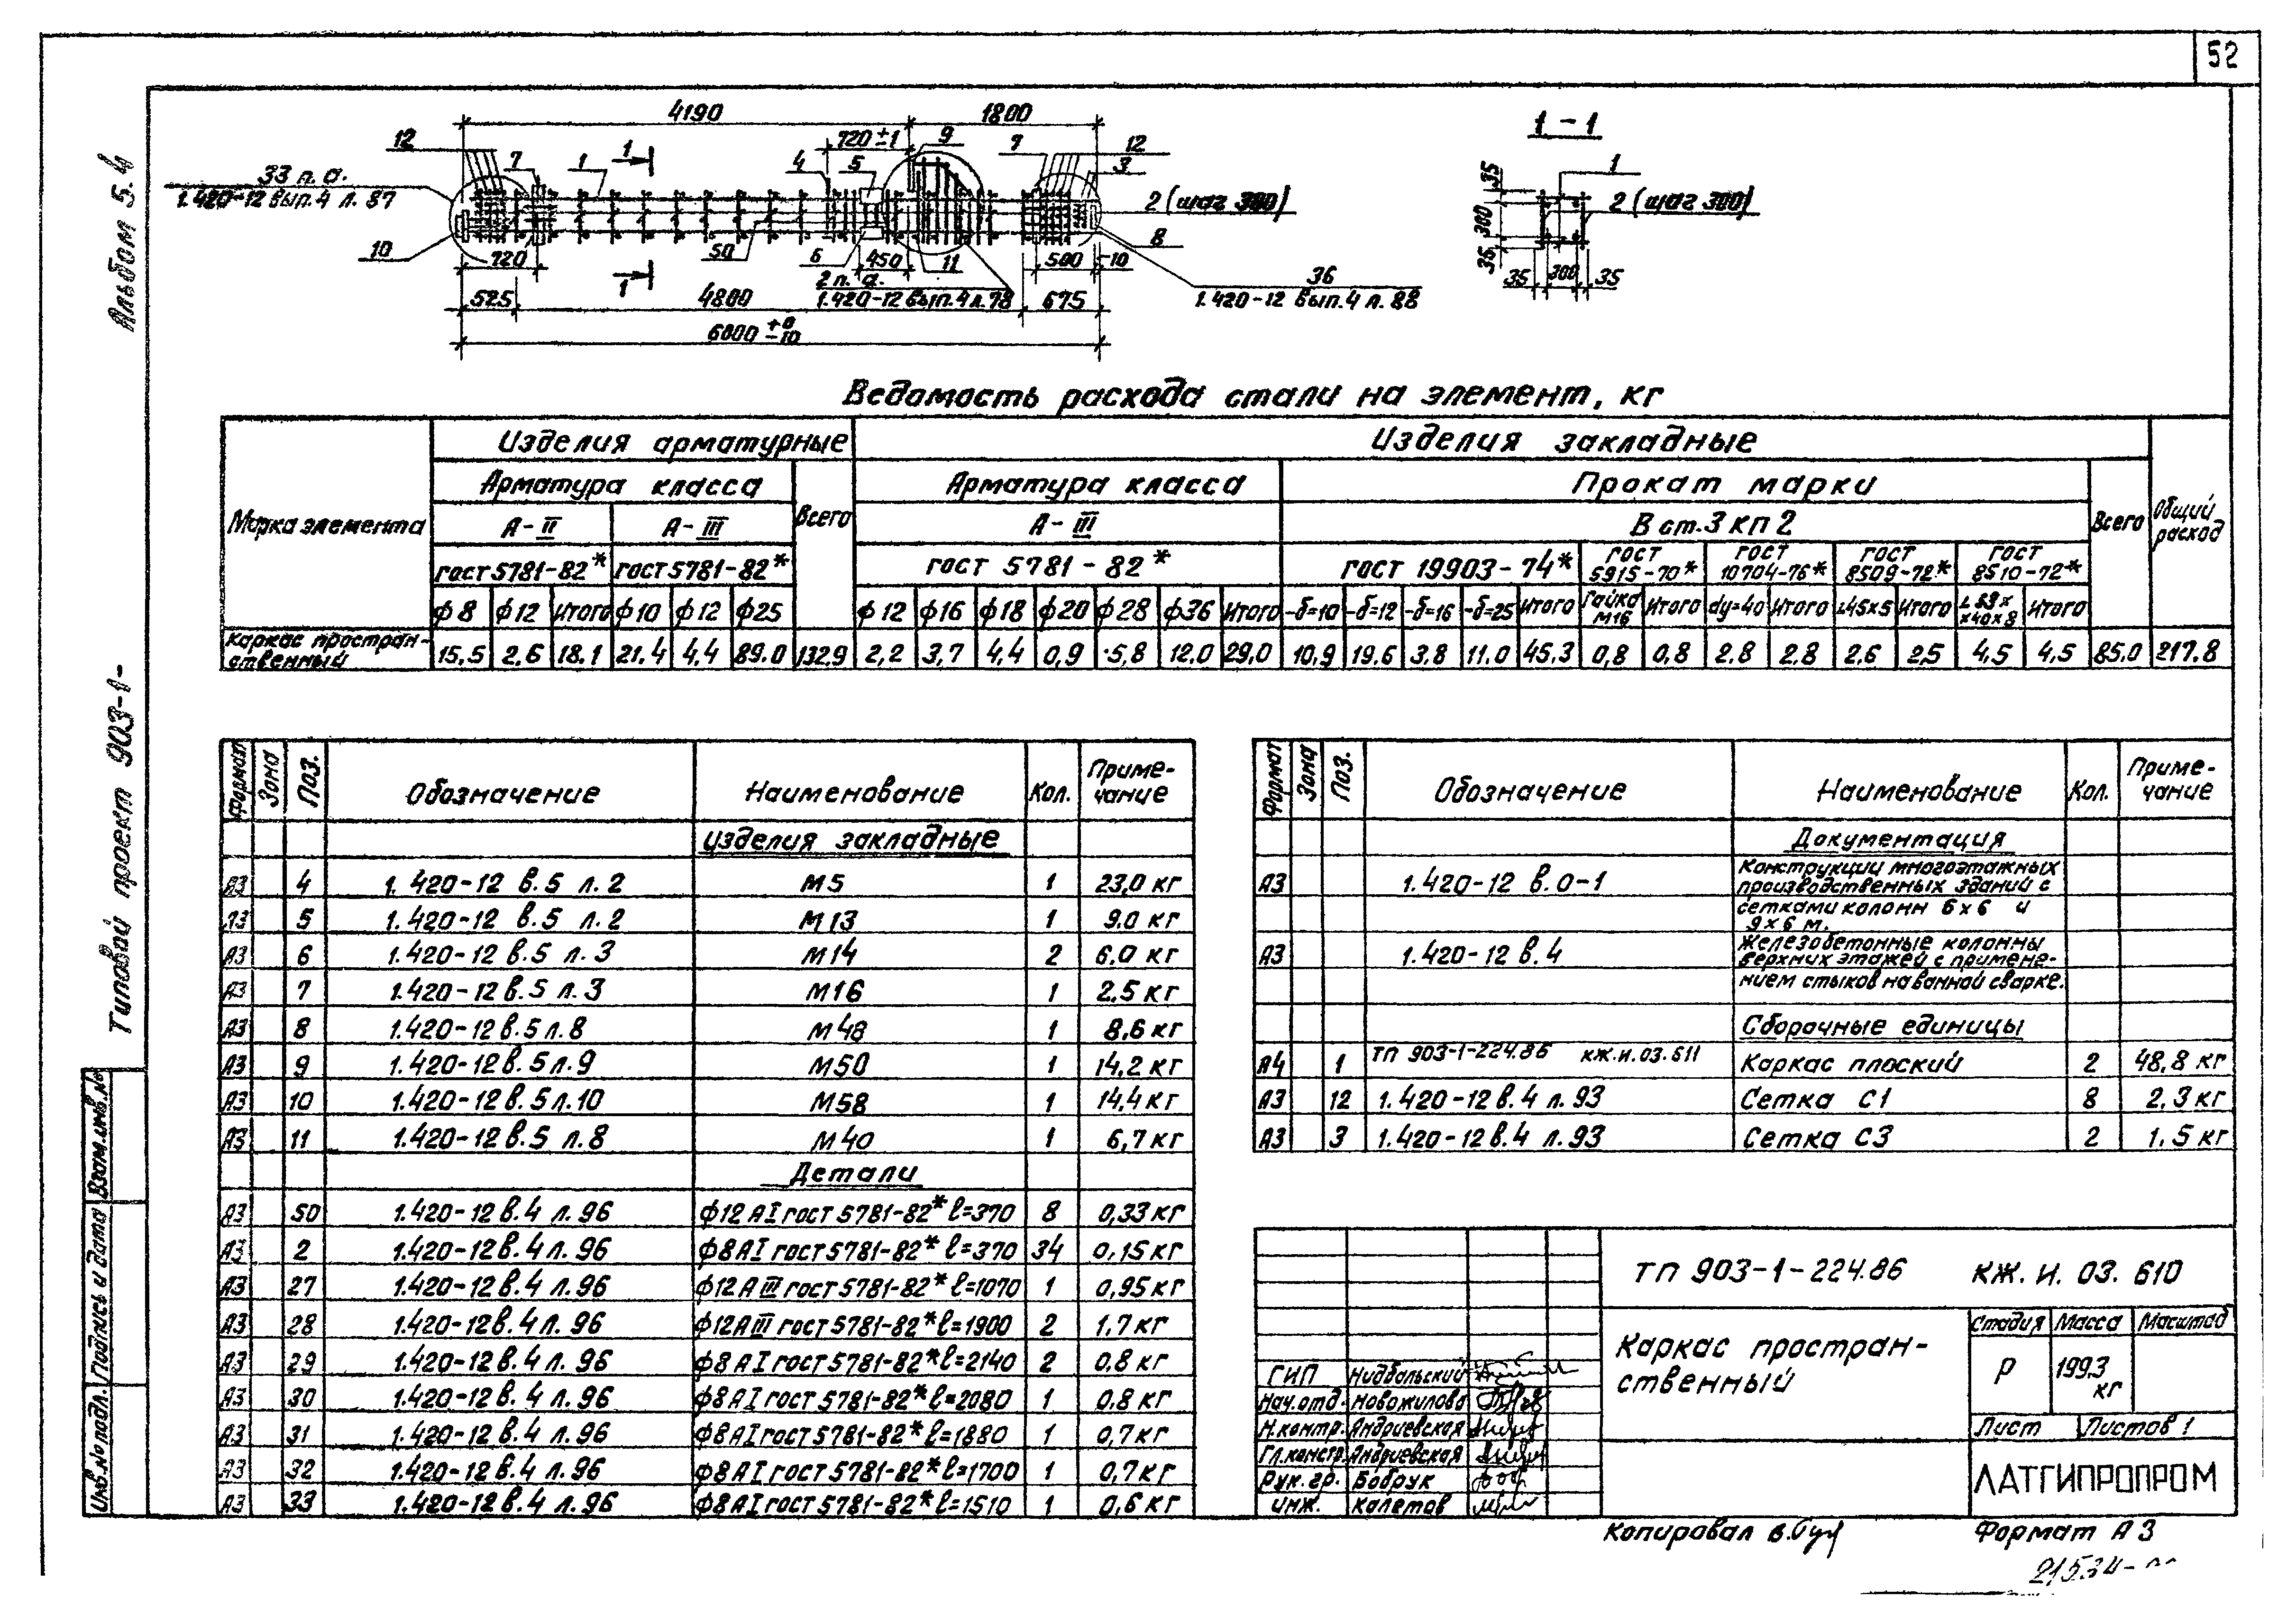 52
Альбом 5.4
Типовой проект 903-1-
Взам.инв.№
Подпись и дата
Инв.№ подл.
4190 1800
720±1
12 7 1 1 4 5 9 7 12 3
33 п. а.
1.420-12 вып.4 л. 87
10
720
1
50
6
450
11
500
10
8
2 (шаг 300)
2 п. а.
1.420-12 вып.4 л.78
36
1.420-12 вып.4 л. 88
525 4800 675
6000 +0 -10
1-1
1
2 (шаг 300)
35 300 35
35 300 35
Ведомость расхода стали на элемент, кг
Марка элемента
Изделия арматурные
Изделия закладные
Общий расход
Арматура класса
Всего
Арматура класса
Прокат марки
Всего
А-II А-III А-III В ст.3 КП 2
ГОСТ 5781-82* ГОСТ 5781-82* ГОСТ 5781-82* ГОСТ 19903-74* ГОСТ 5915-70* ГОСТ 10704-76* ГОСТ 8509-72* ГОСТ 8510-72*
ф8 ф12 Итого ф10 ф12 ф25 ф12 ф16 ф18 ф20 ф28 ф36 Итого -δ=10 -δ=12 -δ=16 -δ=25 Итого Гайка М16 Итого dу=40 Итого ∟45х5 Итого Итого
Каркас пространственный 15,5 2,6 18,1 21.4 4,4 89.0 132,9 2,2 3,7 4,4 0,9 5,8 12.0 29,0 10,9 19.6 3.8 11.0 45.3 0,8 0,8 2.8 2.8 2.6 2,5 4,5 4,5 85.0 217.8
Формат Зона Поз. Обозначение Наименование Кол. Примечание
Изделия закладные
А3 4 1.420-12 в.5 л.2 М5 1 23,0 кг
А3 5 1.420-12 в.5 л.2 М13 1 9.0 кг
А3 6 1.420-12 в.5 л.3 М14 2 6,0 кг
А3 7 1.420-12 в.5 л.3 М16 1 2.5 кг
А3 8 1.420-12 в.5 л.8 М48 1 8,6 кг
А3 9 1.420-12 в.5 л.9 М50 1 14,2 кг
А3 10 1.420-12 в.5 л.10 М58 1 14,4 кг
А3 11 1.420-12 в.5 л.8 М40 1 6,7 кг
Детали
А3 50 1.420-12 в.4 л.96 ф12 АI ГОСТ 5781-82* ℓ=370 8 0,33 кг
А3 2 1.420-12 в.4 л.96 ф8 АI ГОСТ 5781-82* ℓ=370 34 0,15 кг
А3 27 1.420-12 в.4 л.96 ф12 АIII ГОСТ 5781-82* ℓ=1070 1 0,95 кг
А3 28 1.420-12 в.4 л.96 ф12 АIII ГОСТ 5781-82* ℓ=1900 2 1,7 кг
А3 29 1.420-12 в.4 л.96 ф8 АI ГОСТ 5781-82* ℓ=2140 2 0,8 кг
А3 30 1.420-12 в.4 л.96 ф8 АI ГОСТ 5781-82* ℓ=2080 1 0,8 кг
А3 31 1.420-12 в.4 л.96 ф8 АI ГОСТ 5781-82* ℓ=1880 1 0,7 кг
А3 32 1.420-12 в.4 л.96 ф8 АI ГОСТ 5781-82* ℓ=1700 1 0,7 кг
А3 33 1.420-12 в.4 л.96 ф8 АI ГОСТ 5781-82* ℓ=1510 1 0,6 кг
Формат Зона Поз. Обозначение Наименование Кол. Примечание
Документация
А3 1.420-12 в.0-1 Конструкции многоэтажных
производственных зданий с
сетками колонн 6х6 и
9х6 м.
А3 1.420-12 в.4 Железобетонные колонны
верхних этажей с примене-
нием стыков на ванной сварке.
Сборочные единицы
А4 1 ТП 903-1-224.86 КЖ.И.03.611 Каркас плоский 2 48,8 кг
А3 12 1.420-12 в.4 л.93 Сетка С1 8 2,3 кг
А3 3 1.420-12 в.4 л.93 Сетка С3 2 1.5 кг
ТП 903-1-224.86 КЖ. И. 03. 610
Каркас простран-
ственный
Стадия Масса Масштаб
Р 199.3 кг
Лист Листов 1
ЛАТГИПРОПРОМ
ГИП Нидбальский
Нач.отд. Новожилова
Н.контр. Андриевская
Гл.констр. Андриевская
Рук.гр. Бобрук
Инж. Калетов
Копировал Формат А3